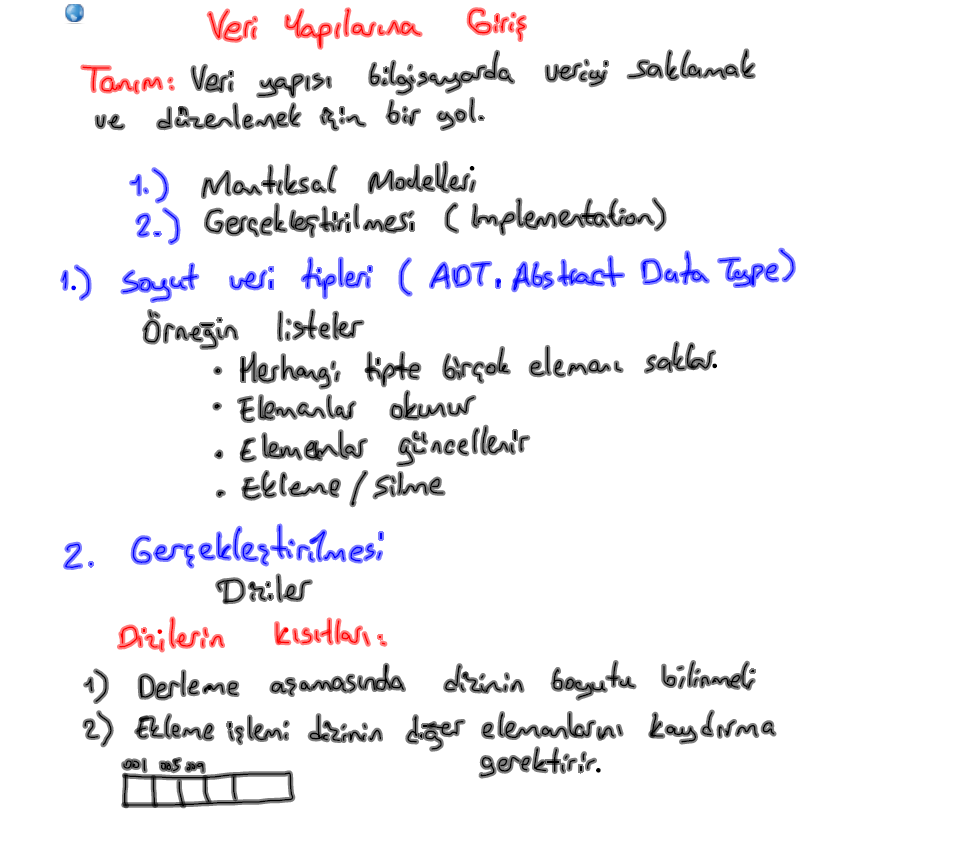 Veri Yapılarına Giriş
Tanım: Veri yapısı bilgisayarda veriyi saklamak
ve düzenlemek için bir yol.
1.) Mantıksal Modelleri
2.) Gerçekleştirilmesi (Implementation)
1.) Soyut veri tipleri (ADT, Abstract Data Type)
Örneğin listeler
• Herhangi tipte birçok elemanı saklar.
• Elemanlar okunur
• Elemanlar güncellenir
• Ekleme / Silme
2. Gerçekleştirilmesi
Diziler
Dizilerin kısıtları:
1) Derleme aşamasında dizinin boyutu bilinmeli
2) Ekleme işlemi dizinin diğer elemanlarını kaydırma
gerektirir.
001 005 009